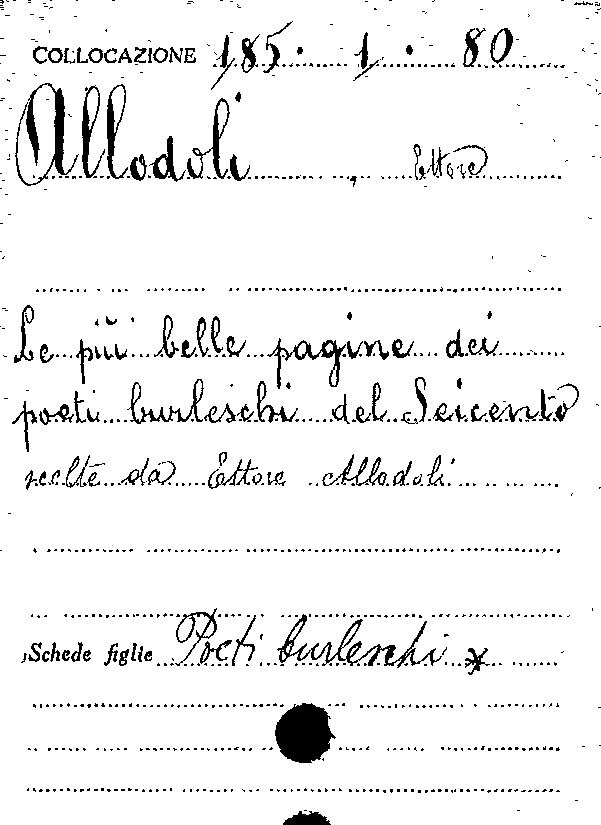 COLLOCAZIONE 185 · 1 · 80
Allodoli, Ettore
Le più belle pagine dei
poeti burleschi del Seicento
scelte da Ettore Allodoli
Schede figlie Poeti burleschi *